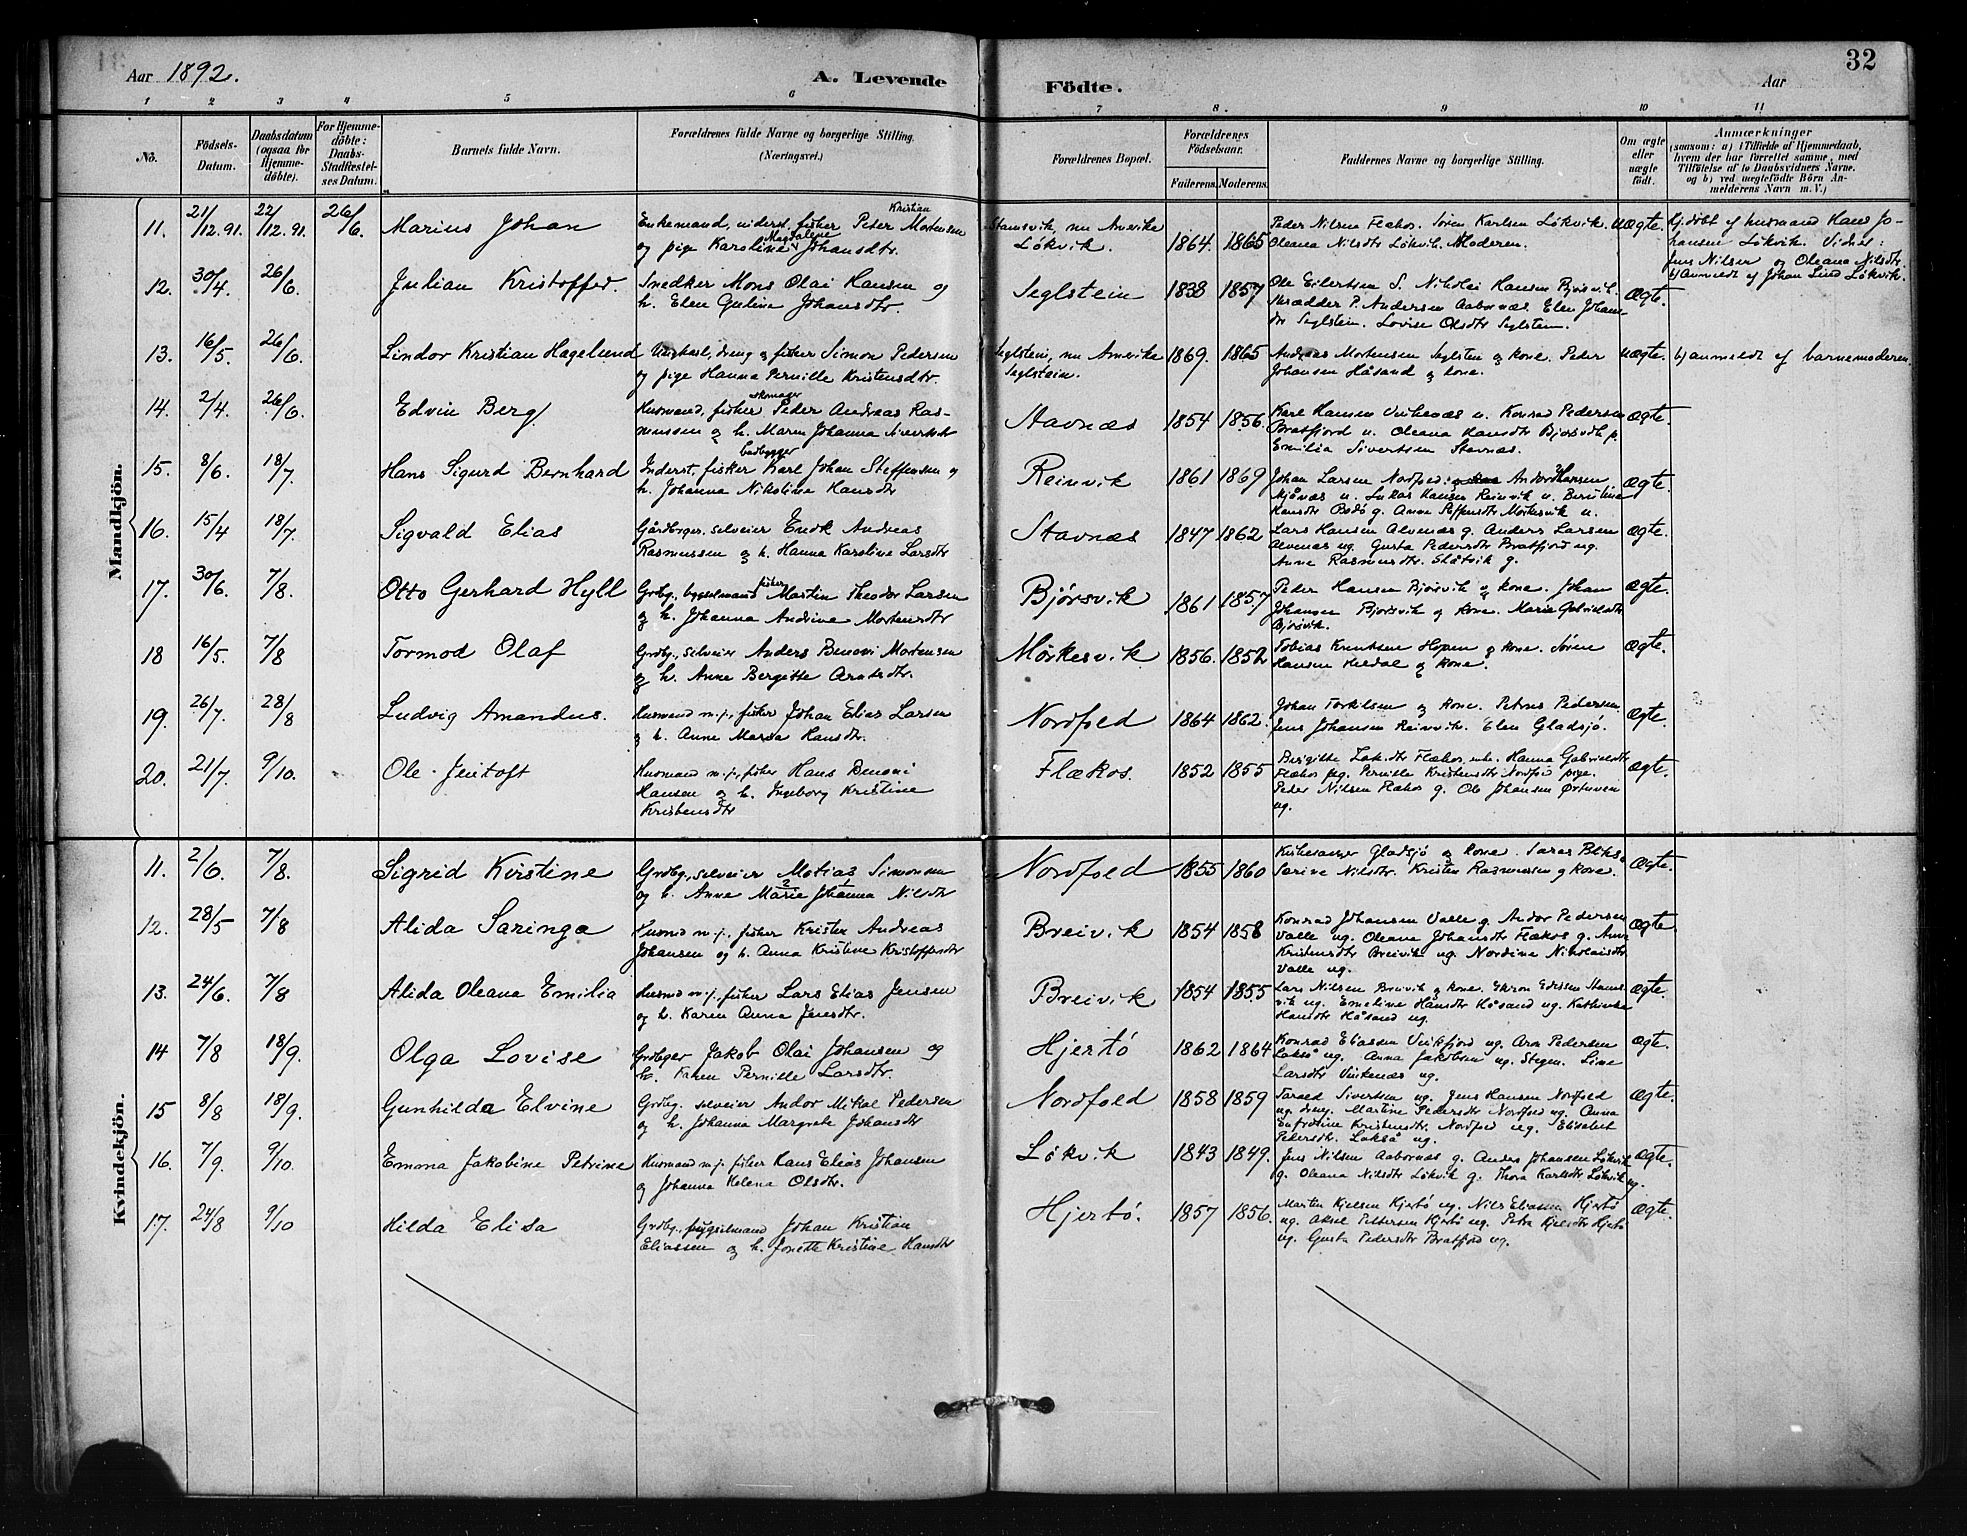 32
Aar 1892.
A. Levende
Födte.
Aar
1 2 3 4 5 6 7 8. 9 10 11
No.
Födsels-
Datum.
Daabsdatum
(ogsaa for
Hjemme-
döbte).
For Hjemme-
döbte:
Daabs-
Stadfæstel-
ses Datum.
Barnets fulde Navn.
Forældrenes fulde Navne og borgerlige Stilling.
(Næringsvei.)
Forældrenes Bopæl.
Forældrenes
Födselsaar.
Faderens. Moderens.
Faddernes Navne og borgerlige Stilling.
Om ægte
eller
uægte
födt.
Anmærkninger
(saasom: a) i Tilfælde af Hjemmedaab,
hvem der har forrettet samme, med
Tilföielse af to Daabsvidners Navne.
og b) ved uægtefödte Börn An-
melderens Navn m. V.)
Mandkjön.
11. 21/12.91. 22/12.91. 26/6. Marius Johan
Kristian
Enkemand, inderst, fisker Peter Mortensen
Magdalene
og pige Karoline Johansdtr.
Stamsvik, nu Amerika
Løkvik.
1864. 1865
Peder Nilsen Flækos. Søren Karlsen Løkvik.
Oleana Nilsdtr Løkvik. Moderen.
uægte.
Hj.døbt af husmand Hans Jo-
hansen Løkvik. Vidner:
Jens Nilsen og Oleana Nilsdtr.
b) anmeldt af Johan Lind Løkvik.
12. 30/4. 26/6. Julian Kristoffer.
Snedker Mons Olai Hansen og
h. Elen Gulina Johansdtr.
Seglstein 1838 1857
Ole Eilertsen S. Nikolai Hansen Bjørsvik.
Skrædder P. Andersen Aabornæs. Elen Johans-
dtr Seglstein. Lovise Olsdtr Seglstein.
Ægte.
13. 16/5. 26/6. Lindor Kristian Hagelund
Ungkarl, dreng og fisker Simon Pedersen
og pige Hanna Pernille Kristensdtr.
Seglstein, nu Amerika
Seglstein.
1869. 1865
Andreas Mortensen Seglsten og kone. Peder
Johansen Håsand og kone.
uægte. b) anmeldt af barnemoderen.
14. 2/4. 26/6. Edvin Berg
skomager
Husmand, fisker Peder Andreas Ras-
mussen og h. Maren Johanna Sivertsdtr
Stavnæs 1854 1856.
Karl Hansen Vinkenæs u. Konrad Pedersen
Bratfjord u. Oleana Hansdtr Bjørsvik p.
Emilia Sivertsen Stavnæs.
Ægte.
15. 8/6. 18/7. Hans Sigurd Bernhard
badbygger
Inderst, fisker Karl Johan Steffensen og
h. Johanna Nikolina Hansdtr
Reinvik 1861 1869
Johan Larsen Nordfold. Andor Hansen
Mjånæs u. Lukas Hansen Reinvik u. Berntine
Hansdtr Bodø g. Anne Steffensdtr Mørkesvik u.
Ægte.
16. 15/4 18/7. Sigvald Elias
Gårdbrger, selveier Enok Andreas
Rasmussen og h. Hanna Karoline Larsdtr
Stavnæs 1847 1862
Lars Hansen Alvenæs g. Anders Larsen
Alvenæs ug. Gusta Pedersdtr Bratfjord ug.
Anne Rasmusdtr. Skåtvik g.
Ægte.
17. 30/6. 7/8. Otto Gerhard Hyll
fisker
Grdbg., bygselmand Martin Theodor Larsen
og h. Johanna Andrine Mortensdtr
Bjørsvik 1861 1857
Peder Hansen Bjørsvik og kone. Johan
Johansen Bjørsvik og kone. Maria Gabrielsdtr
Bjørsvik.
Ægte.
18 16/5. 7/8 Tormod Olaf
Grdbg., selveier Anders Benoni Mortensen
og h. Anne Bergitte Arntsdtr.
Mørkesvik 1856. 1852
Tobias Knutsen Hopen og kone. Søren
Hansen Heldal og kone.
Ægte.
19. 26/7. 28/8 Ludvig Amandus.
Husmand m. j., fisker Johan Elias Larsen
og h. Anne Marsa Hansdtr.
Nordfold 1864 1862.
Johan Torkilsen og kone. Petrus Pedersen
Jens Johansen Reinvik. Elen Gladsjø.
Ægte.
20. 21/7. 9/10. Ole Jentoft
Husmand m. j., fisker Hans Benoni
Hansen og h. Ingeborg Kristine
Kristensdtr
Flækos. 1852 1855
Birgitte Zak.dtr Flækos enk. Hanna Gabrielsdtr
Flækos pg. Pernille Kristensdtr Nordfold pige.
Peder Nilsen Flækos g. Ole Johansen Ørtuven
ug.
Ægte.
Kvindekjön.
11. 2/6. 7/8. Sigrid Kristine
Grdbg., selveier Matias Simonsen
2 1
og h. Anne Marie Johanna Nilsdtr
Nordfold 1855 1860
Kirkesanger Gladsjø og kone.
Sarine Nilsdtr. Kristen Rasmussen og kone.
Ægte.
12. 28/5 7/8 Alida Saringa
Husmd m. j., fisker Krister Andreas
Johansen og h. Anna Kristine Kristoffersdtr
Breivik 1854 1858
Konrad Johansen Valle g. Andor Pedersen
Valle ug. Oleana Johansdtr Flækos g. Anne
Kristensdtr Breivik ug. Nordina Nikolaisdtr
Valle ug.
Ægte.
13. 24/6. 7/8 Alida Oleana Emilia
Husmd m. j., fisker Lars Elias Jensen
og h. Karen Anna Jensdtr.
Breivik 1854 1855
Lars Nilsen Breivik og kone. Edissen Stams-
vik ug. Emeline Hansdtr Håsand ug. Kathinka
Hansdtr Håsand ug.
Ægte.
14 7/8 18/9. Olga Lovise
Grdbrger Jakob Olai Johansen og
h. Karen Pernille Larsdtr.
Hjertø 1862 1864
Konrad Eliassen Vinkfjord ug. Aron Pedersen
Lakså ug. Anna Jakobsen ug. Stegen. Line
Larsdtr Vinkenæs ug.
Ægte.
15 8/8 18/9. Gunhilda Elvine
Grdbg. selveier Andor Mikal Pedersen
og h. Johanna Margrete Johansdtr
Nordfold 1858 1859
Sivertsen ug. Jens Hansen Nordfold
ug. dreng. Martine Pedersdtr Nordfold ug. Anna
Enfrøtine Kristensdtr. Nordfold ug. Elisabet
Pedersdtr. Lakså ug.
Ægte.
16. 7/9. 9/10. Emma Jakobine Petrine
Husmand m. j. fisker Hans Elias Johansen
og Johanna Helena Olsdtr.
Løkvik 1843 1849.
Jens Nilsen Aabornæs g. Anders Johansen Løkvik
g. Oleana Nilsdtr Løkvik g. Thora Karlsdtr Løkvik ug.
Ægte.
17. 24/8 9/10 Hilda Elisa
Grdbg., bygselmand Johan Kristian
Eliassen og h. Jonette Kristine Hansdtr
Hjertø. 1857 1856.
Martin Kjelsen Hjertø ug. Nils Eliassen Hjertø
ug. Aksel Pettersen Hjertø ug. Petra Kjelsdtr Hjertø
ug. Gusta Pedersdtr Bratfjord ug.
Ægte.